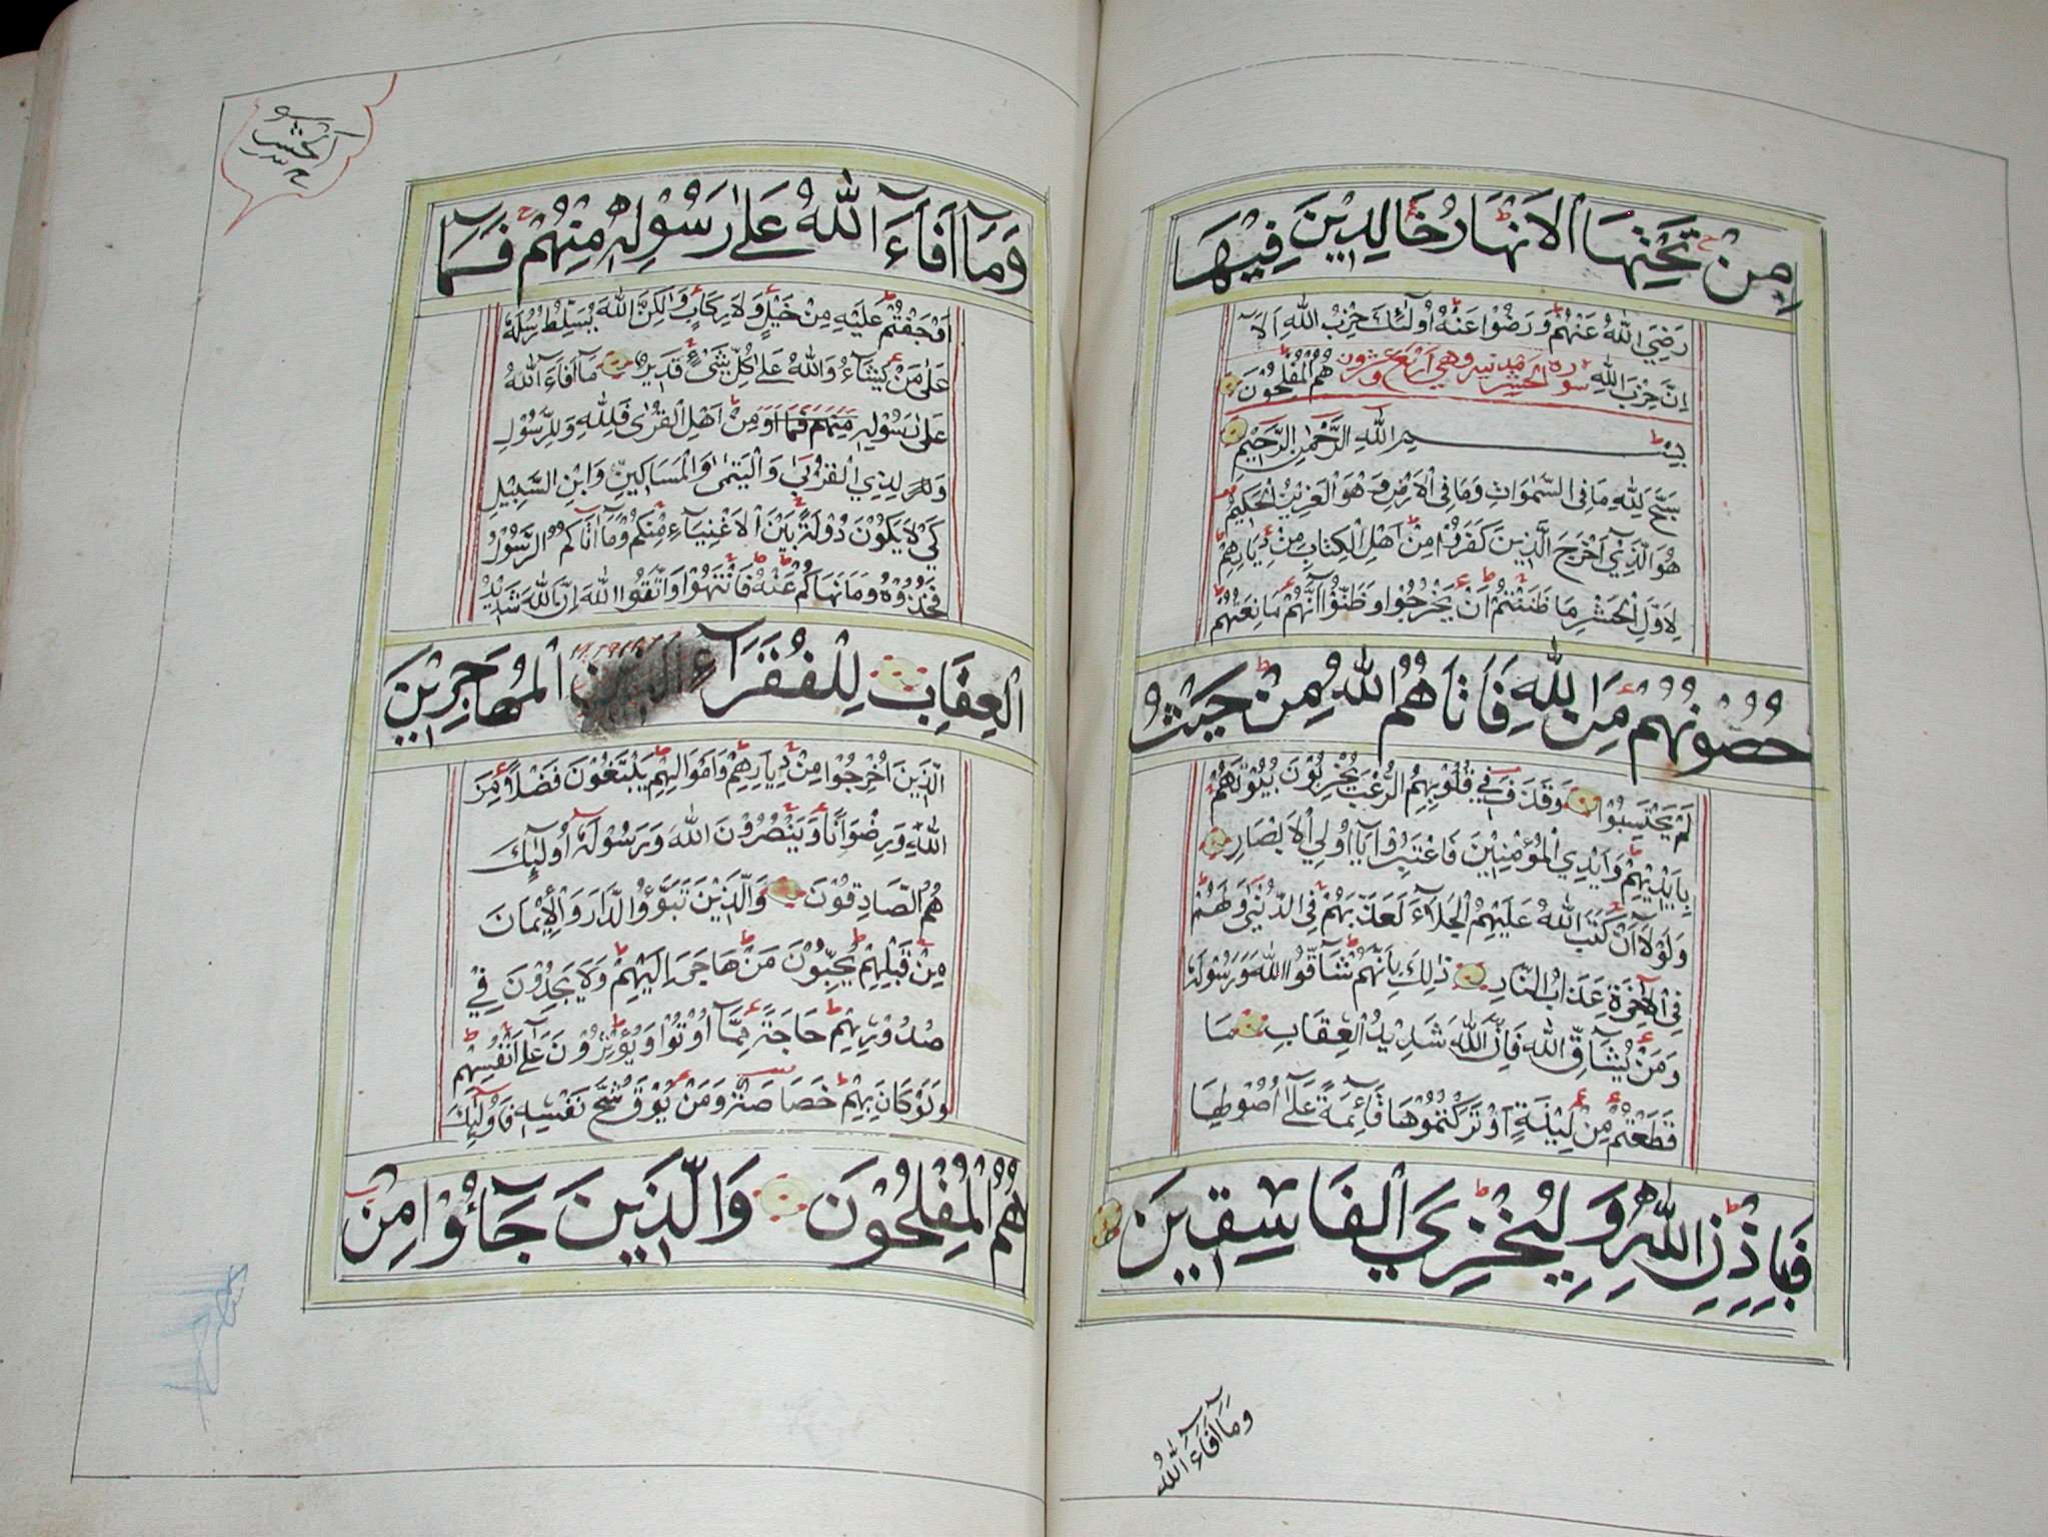 مِنْ تَحْتِهَا الْاَنْهَارُ خَالِدِيْنَ فِيْهَا
رَضِيَ اللّٰهُ عَنْهُمْ وَرَضُوْا عَنْهُ اُولٰٓئِكَ حِزْبُ اللّٰهِ اَلَآ
اِنَّ حِزْبَ اللّٰهِ هُمُ الْمُفْلِحُوْنَ سورة الحشر مدنية وهي اربع وعشرون
بِسْمِ اللّٰهِ الرَّحْمٰنِ الرَّحِيْمِ
سَبَّحَ لِلّٰهِ مَا فِى السَّمٰوَاتِ وَمَا فِى الْاَرْضِ وَهُوَ الْعَزِيْزُ الْحَكِيْمُ
هُوَ الَّذِيْ اَخْرَجَ الَّذِيْنَ كَفَرُوْا مِنْ اَهْلِ الْكِتَابِ مِنْ دِيَارِهِمْ
لِاَوَّلِ الْحَشْرِ مَا ظَنَنْتُمْ اَنْ يَخْرُجُوْا وَظَنُّوْا اَنَّهُمْ مَانِعَتُهُمْ
حُصُوْنُهُمْ مِنَ اللّٰهِ فَاَتَاهُمُ اللّٰهُ مِنْ حَيْثُ
لَمْ يَحْتَسِبُوْا وَقَذَفَ فِيْ قُلُوْبِهِمُ الرُّعْبَ يُخْرِبُوْنَ بُيُوْتَهُمْ
بِاَيْدِيْهِمْ وَاَيْدِي الْمُؤْمِنِيْنَ فَاعْتَبِرُوْا يَآ اُولِي الْاَبْصَارِ
وَلَوْلَآ اَنْ كَتَبَ اللّٰهُ عَلَيْهِمُ الْجَلَآءَ لَعَذَّبَهُمْ فِى الدُّنْيَا وَلَهُمْ
فِى الْاٰخِرَةِ عَذَابُ النَّارِ ذٰلِكَ بِاَنَّهُمْ شَآقُّوا اللّٰهَ وَرَسُوْلَهٗ
وَمَنْ يُشَآقِّ اللّٰهَ فَاِنَّ اللّٰهَ شَدِيْدُ الْعِقَابِ مَا
قَطَعْتُمْ مِنْ لِيْنَةٍ اَوْ تَرَكْتُمُوْهَا قَآئِمَةً عَلٰٓى اُصُوْلِهَا
فَبِاِذْنِ اللّٰهِ وَلِيُخْزِيَ الْفَاسِقِيْنَ
وَمَآ اَفَآءَ اللّٰهُ
الحشر
وَمَآ اَفَآءَ اللّٰهُ عَلٰى رَسُوْلِهٖ مِنْهُمْ فَمَآ
اَوْجَفْتُمْ عَلَيْهِ مِنْ خَيْلٍ وَلَا رِكَابٍ وَلٰكِنَّ اللّٰهَ يُسَلِّطُ رُسُلَهٗ
عَلٰى مَنْ يَشَآءُ وَاللّٰهُ عَلٰى كُلِّ شَيْءٍ قَدِيْرٌ مَآ اَفَآءَ اللّٰهُ
عَلٰى رَسُوْلِهٖ مِنْهُمْ فَمَآ اَوْ مِنْ اَهْلِ الْقُرٰى فَلِلّٰهِ وَلِلرَّسُوْلِ
وَلِذِي الْقُرْبٰى وَالْيَتٰمٰى وَالْمَسَاكِيْنِ وَابْنِ السَّبِيْلِ
كَيْ لَا يَكُوْنَ دُوْلَةً بَيْنَ الْاَغْنِيَآءِ مِنْكُمْ وَمَآ اٰتَاكُمُ الرَّسُوْلُ
فَخُذُوْهُ وَمَا نَهَاكُمْ عَنْهُ فَانْتَهُوْا وَاتَّقُوا اللّٰهَ اِنَّ اللّٰهَ شَدِيْدُ
الْعِقَابِ لِلْفُقَرَآءِ الْمُهَاجِرِيْنَ
الَّذِيْنَ اُخْرِجُوْا مِنْ دِيَارِهِمْ وَاَمْوَالِهِمْ يَبْتَغُوْنَ فَضْلًا مِنَ
اللّٰهِ وَرِضْوَانًا وَيَنْصُرُوْنَ اللّٰهَ وَرَسُوْلَهٗ اُولٰٓئِكَ
هُمُ الصَّادِقُوْنَ وَالَّذِيْنَ تَبَوَّؤُ الدَّارَ وَالْاِيْمَانَ
مِنْ قَبْلِهِمْ يُحِبُّوْنَ مَنْ هَاجَرَ اِلَيْهِمْ وَلَا يَجِدُوْنَ فِيْ
صُدُوْرِهِمْ حَاجَةً مِمَّآ اُوْتُوْا وَيُؤْثِرُوْنَ عَلٰٓى اَنْفُسِهِمْ
وَلَوْ كَانَ بِهِمْ خَصَاصَةٌ وَمَنْ يُوْقَ شُحَّ نَفْسِهٖ فَاُولٰٓئِكَ
هُمُ الْمُفْلِحُوْنَ وَالَّذِيْنَ جَآءُوْا مِنْ